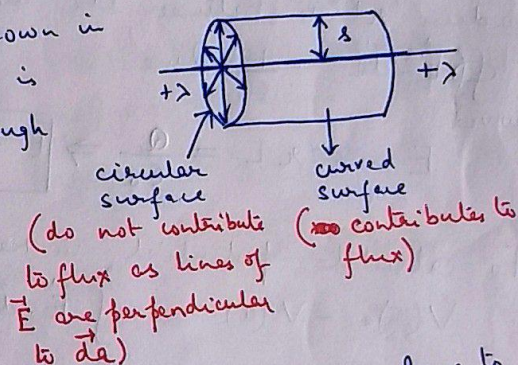 own in
is
ugh
s
+λ
+λ
circular
surface
curved
surface
(do not contribute
to flux as lines of
E⃗ are perpendicular
to d⃗a)
(contributes to
flux)
to